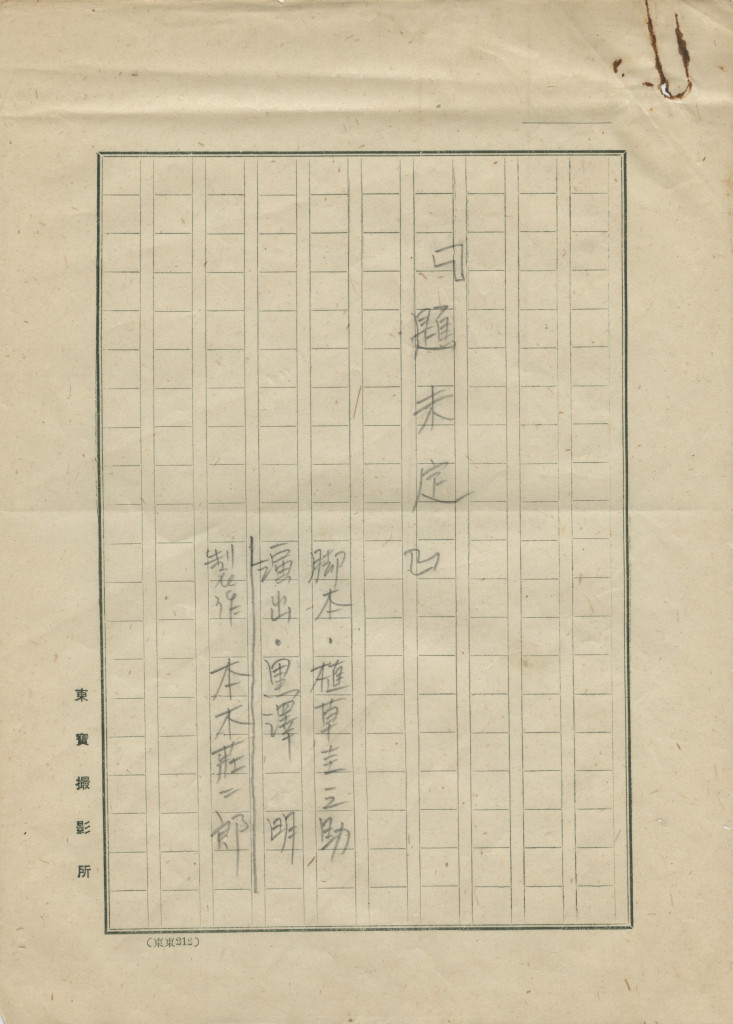 『題未定』
脚本・植草圭之助
演出・黒澤　明
製作　本木荘二郎
東寳撮影所
(東東212)